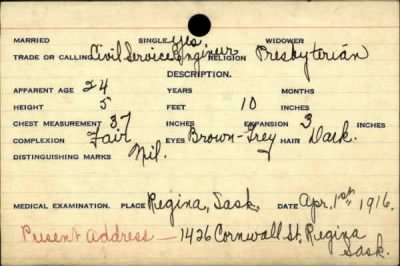 MARRIED SINGLE yes WIDOWER
TRADE OR CALLING Civil Service Engineer RELIGION Presbyterian
DESCRIPTION.
APPARENT AGE 24 YEARS MONTHS
HEIGHT 5 FEET 10 INCHES
CHEST MEASUREMENT 37 INCHES EXPANSION 3 INCHES
COMPLEXION Fair EYES Brown-Grey HAIR Dark.
DISTINGUISHING MARKS Nil.
MEDICAL EXAMINATION. PLACE Regina, Sask. DATE Apr. 1st, 1916.
Present Address — 1426 Cornwall St, Regina
Sask.